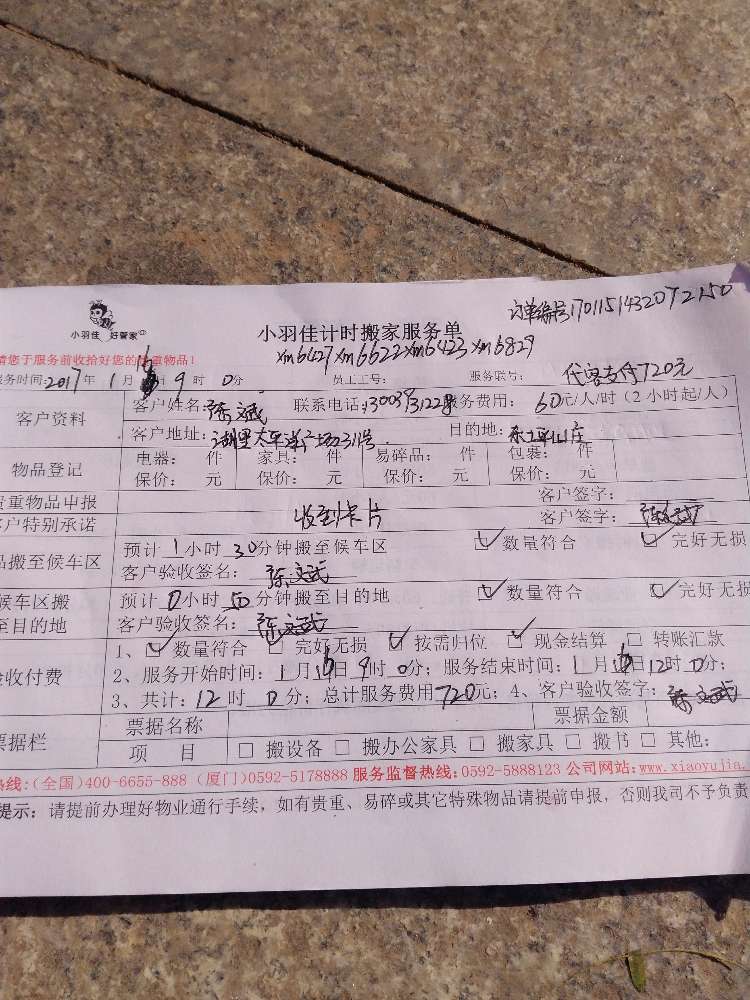 订单编号1701151432072150
小羽佳 好管家
小羽佳计时搬家服务单
xm6427 xm6622 xm6423 xm6829
请您于服务前收拾好您的贵重物品!
服务时间:2017年1月16日9时0分 员工工号: 服务联号: 代客支付720元
客户资料 客户姓名: 联系电话: 服务费用:60元/人/时(2小时起/人)
客户地址:湖里太平洋广场311号 目的地:
物品登记 电器: 件 家具: 件 易碎品: 件 包裹: 件
保价: 元 保价: 元 保价: 元 保价: 元
贵重物品申报 客户签字:
客户特别承诺 收到卡片 客户签字:陈文斌
品搬至候车区 预计1小时30分钟搬至候车区 数量符合 完好无损
客户验收签名:陈文斌
候车区搬至目的地 预计0小时50分钟搬至目的地 数量符合 完好无损
客户验收签名:陈文斌
验收付费 1、 数量符合 完好无损 按需归位 现金结算 转账汇款
2、服务开始时间:1月16日9时0分;服务结束时间:1月16日12时0分;
3、共计:12时0分;总计服务费用720元;4、客户验收签字:陈文斌
票据栏 票据名称 票据金额
项 目 搬设备 搬办公家具 搬家具 搬书 其他:
热线:(全国)400-6655-888 (厦门)0592-5178888 服务监督热线:0592-5888123 公司网站:www.xiaoyujia.
提示:请提前办理好物业通行手续,如有贵重、易碎或其它特殊物品请提前申报,否则我司不予负责